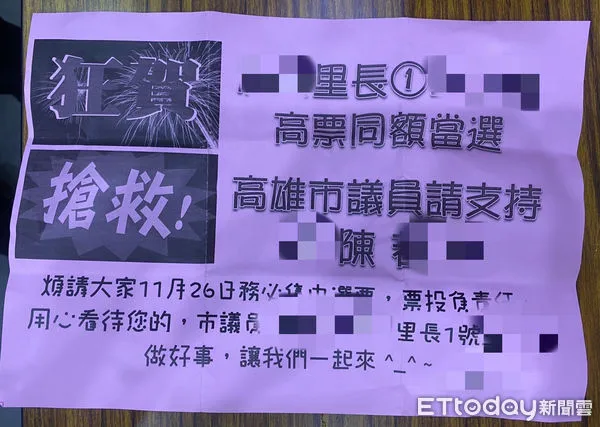 狂賀
里長①
高票同額當選
搶救!
高雄市議員請支持
陳
煩請大家11月26日務必集中選票，票投負責任、
用心看待您的，市議員 里長1號
做好事，讓我們一起來^_^~
ETtoday新聞雲